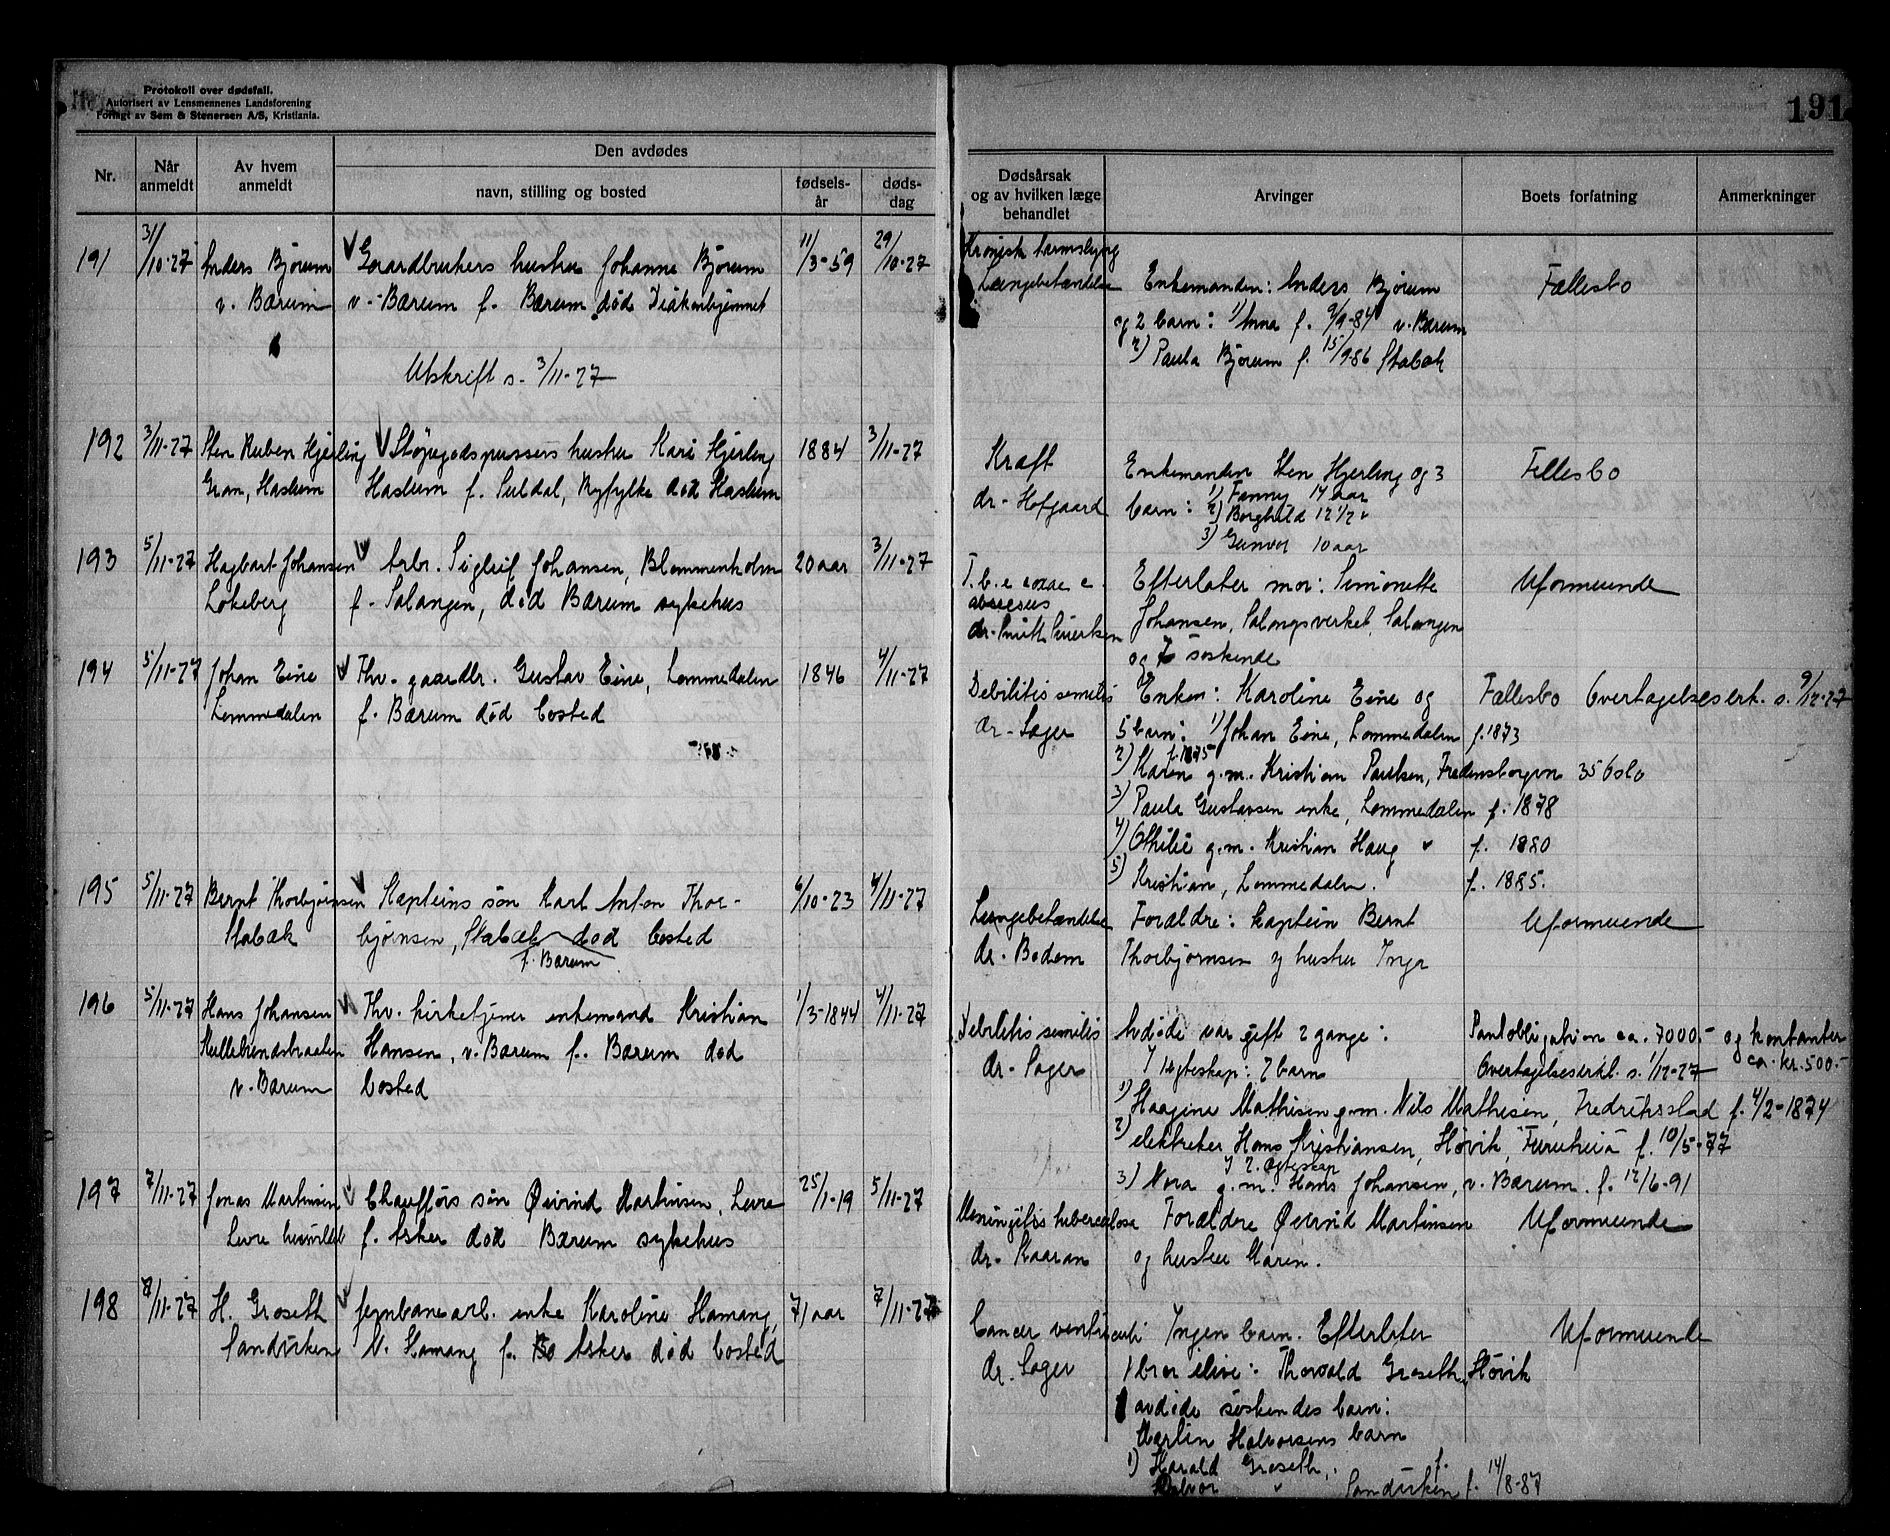 Protokoll over dødsfall.
Autorisert av Lensmennenes Landsforening
Forlagt av Sem & Stenersen A/S, Kristiania.
191
Nr.
Når anmeldt
Av hvem anmeldt
Den avdødes
navn, stilling og bosted
fødsels-år
døds-dag
Dødsårsak og av hvilken læge behandlet
Arvinger
Boets forfatning
Anmerkninger
191 31/10-27 Anders Bjørum Gaardbrukers hustru Johanne Bjørum 11/3-59 29/10-27
v. Bærum v. Bærum f. Bærum død Diakonhjemmet
Utskrift s. 3/11-27
Kronisk
Lungebetændelse Enkemanden: Anders Bjørum Fællesbo
og 2 barn: 1) Anna f. 9/9-84 v. Bærum
2) Paula Bjørum f. 15/9 86 Stabæk
192 3/11-27 Sten Ruben Hjerling Støpegodspussers hustru Kari Hjerling 1884 3/11-27
Gran, Haslum Haslum f. Suldal, Ryfylke død Haslum
Kræft Enkemanden Sten Hjerling og 3 Fellesbo
dr. Hofgaard barn: 1) Fanny 14 aar
2) Borghild 12 1/2 "
3) Gunvor 10 aar
193 5/11-27 Hagbart Johansen Arb. Sigleif Johansen, Blommenholm 20 aar 3/11-27
Løkeberg f. Salangen, død Bærum sykehus
T.b.c coxae c. Efterlater mor: Simonette Uformuende
abscesus Johansen, Salangsverket, Salangen
dr. Smith og 7 søskende
194 5/11-27 Johan Eine Fhv. gaardbr. Gustav Eine, Lommedalen 1846 4/11-27
Lommedalen f. Bærum død bosted
Debilitis senilis Enken: Karoline Eine og Fællesbo Overtagelseserk. s. 9/12-27
dr. Sager 5 barn: 1) Johan Eine, Lommedalen f. 1873
2) Karen f. 1875 g.m. Kristian Paulsen, Fredensborgvn 35 Oslo
3) Paula Gustavsen enke, Lommedalen f. 1878
4) Othilie g.m. Kristian Haug " f. 1880
5) Kristian, Lommedalen. f. 1885.
195 5/11-27 Bernt Thorbjørnsen Kapteins søn Karl Anton Thor- 6/10-23 4/11-27
Stabæk bjørnsen, Stabæk død bosted
f. Bærum
Lungebetændelse Forældre: kaptein Bernt Uformuende
dr. Bodom Thorbjørnsen og hustru Inga
196 5/11-27 Hans Johansen Fhv. kirketjener enkemand Kristian 1/3-1844 4/11-27
Hansen, v. Bærum f. Bærum død
v. Bærum bosted
Debilitis senilis Avdøde var gift 2 gange: Pantobligation ca. 7000.- og kontanter
dr. Sager I 1 egteskap: 2 barn Overtagelseserkl. s. 1/12-27 ca. kr. 500.-
1) Haagine Mathisen g.m. Nils Mathisen, Fredrikstad f. 4/2-1874
2) elektriker Hans Kristiansen, Høvik, Furuheia f. 10/5-77
I 2. Egteskap
3) Nora g.m. Hans Johansen, v. Bærum. f. 12/6-91
197 7/11-27 Jonas Martinsen Chaufförs søn Øivind Martinsen, Levre 25/1-19 5/11-27
Levre f. Asker død Bærum sykehus
Meningitis tuberculosa Forældre Øivind Martinsen Uformuende
dr. Kaaran og hustru Maren.
198 7/11-27 H. Groseth Jernbanearb. enke Karoline Hamang, 71 aar 7/11-27
Sandviken V. Hamang f. Asker død bosted
Cancer ventriculi Ingen barn. Efterlater Uformuende
dr. Sager 1 bror ilive: Thorvald Groseth, Høvik
avdøde søskendes barn:
Martin Halvorsens barn
1) Harald Groseth, f.
Halvor " Sandviken f. 14/8-87